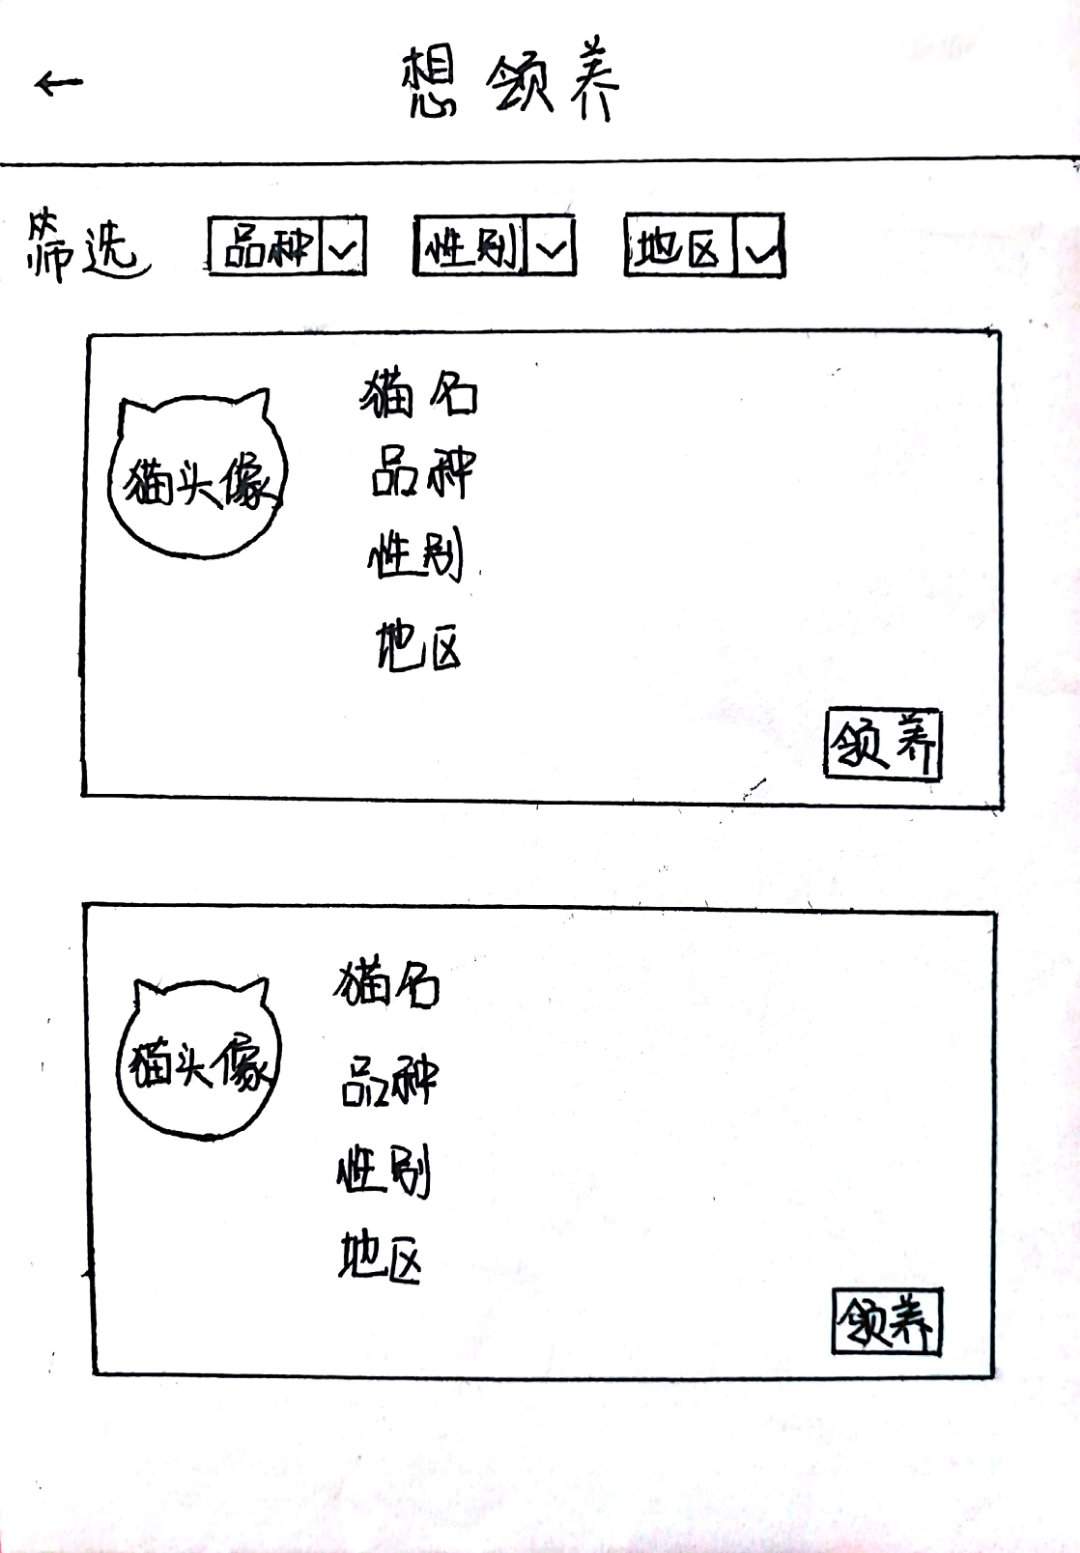 ← 想领养
筛选 品种 性别 地区
猫头像
猫名
品种
性别
地区
领养
猫头像
猫名
品种
性别
地区
领养